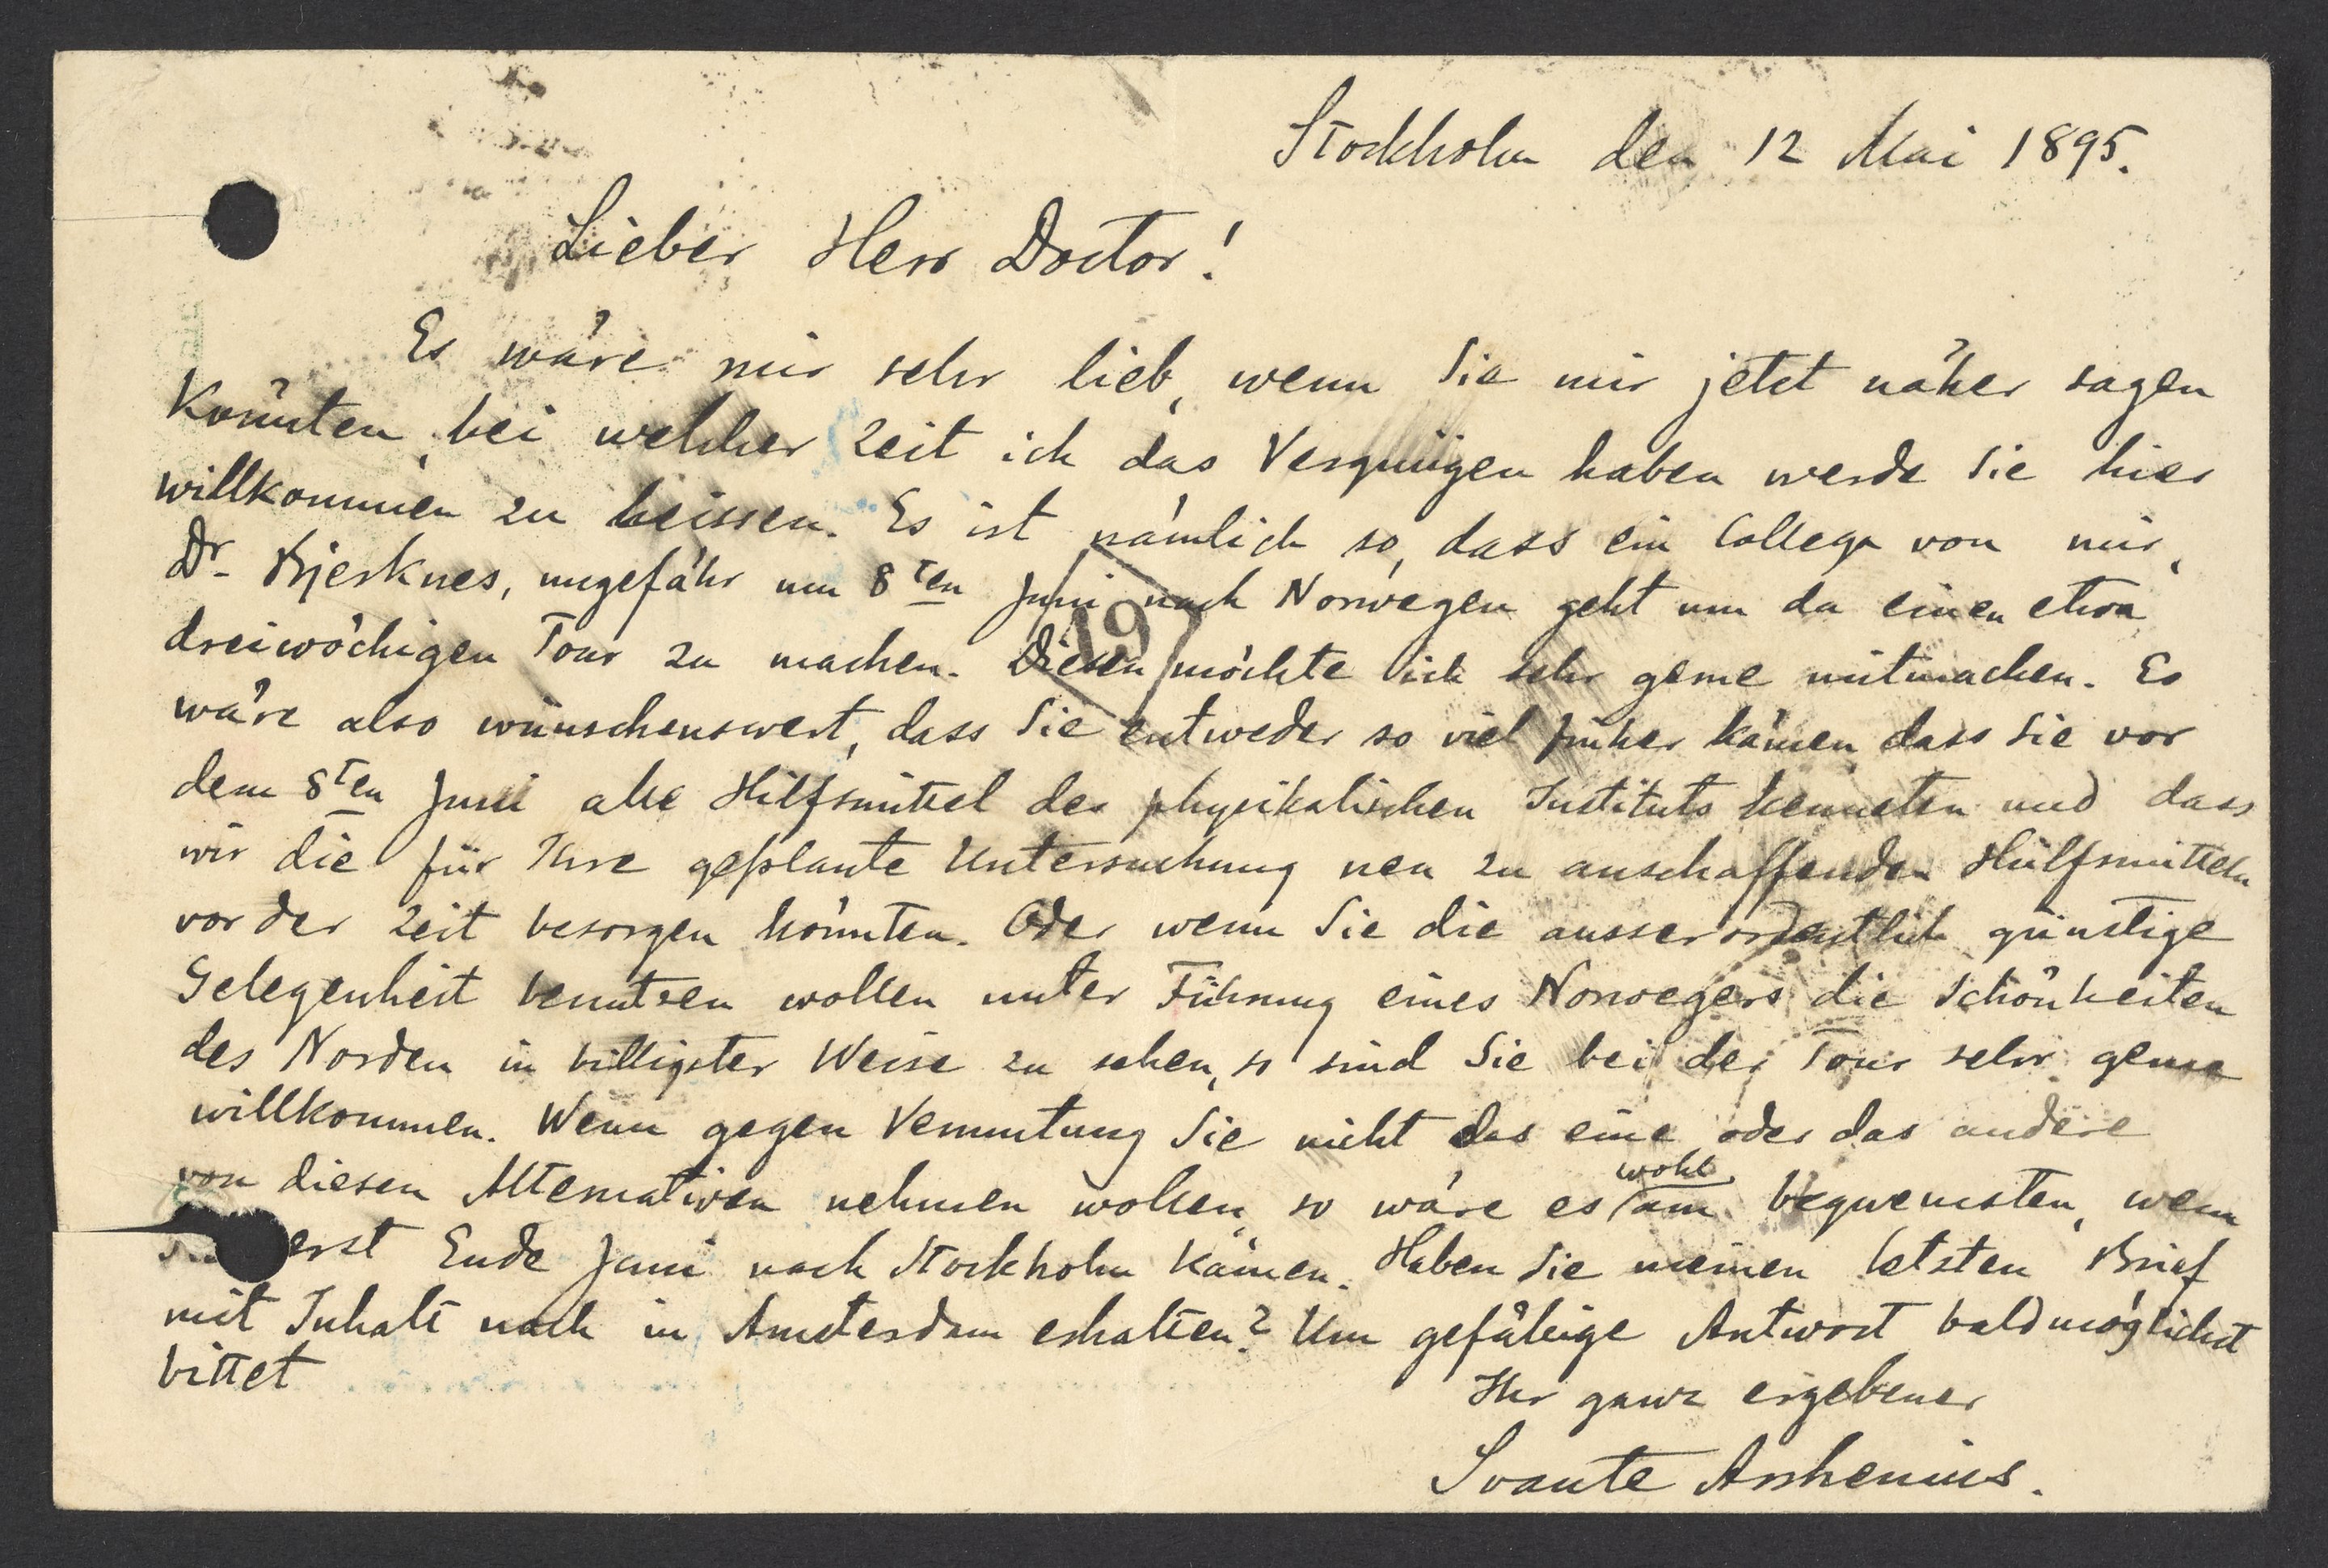 Stockholm den 12 Mai 1895.
Lieber Herr Doctor!
Es wäre mir sehr lieb, wenn Sie mir jetzt näher sagen
könnten, bei welcher Zeit ich das Vergnügen haben werde Sie hier
willkommen zu heissen. Es ist nämlich so, dass ein Collega von mir,
Dr. Bjerknes, ungefähr um 8ten Juni nach Norwegen geht um da einen etwa
dreiwöchigen Tour zu machen. Diesen möchte ich sehr gerne mitmachen. Es
19
wäre also wünschenswert, dass Sie entweder so viel früher kämen dass Sie vor
dem 8ten Juni alle Hilfsmittel des physikalischen Instituts kennten und dass
wir die für Ihre geplante Untersuchung neu zu anschaffenden Hülfsmitteln
vor der Zeit besorgen könnten. Oder wenn Sie die ausserordentlich günstige
Gelegenheit benutzen wollen unter Führung eines Norwegers die Schönheiten
des Norden in billigster Weise zu sehen, so sind Sie bei der Tour sehr gerne
willkommen. Wenn gegen Vermutung Sie nicht das eine oder das andere
von diesen Alternativen nehmen wollen, so wäre es wohl am bequemsten, wenn
erst Ende Juni nach Stockholm kämen. Haben Sie meinen letzten Brief
mit Inhalt noch in Amsterdam erhalten? Um gefällige Antwort baldmöglichst
bittet
Ihr ganz ergebener
Svante Arrhenius.